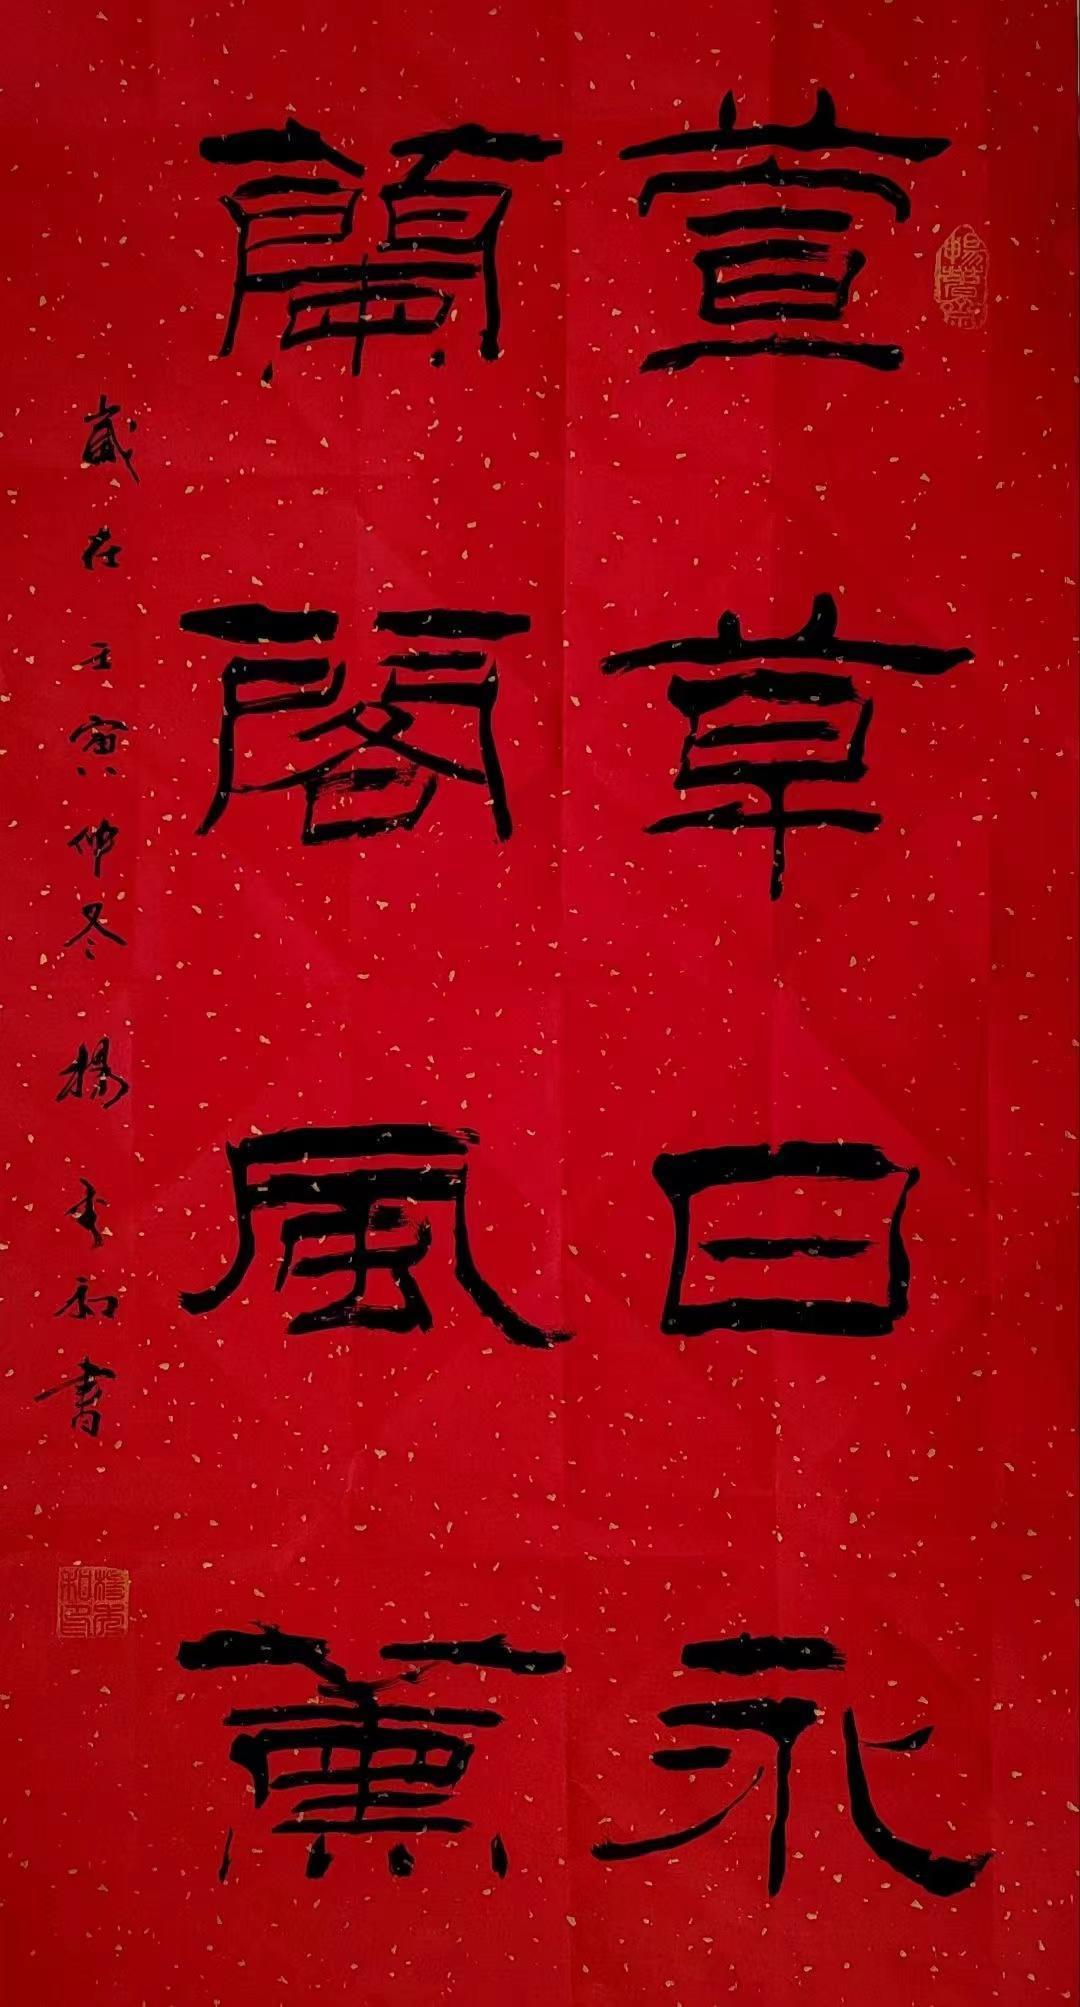 萱草日永
蘭閣風薰
歲在壬寅仲冬楊秀和書